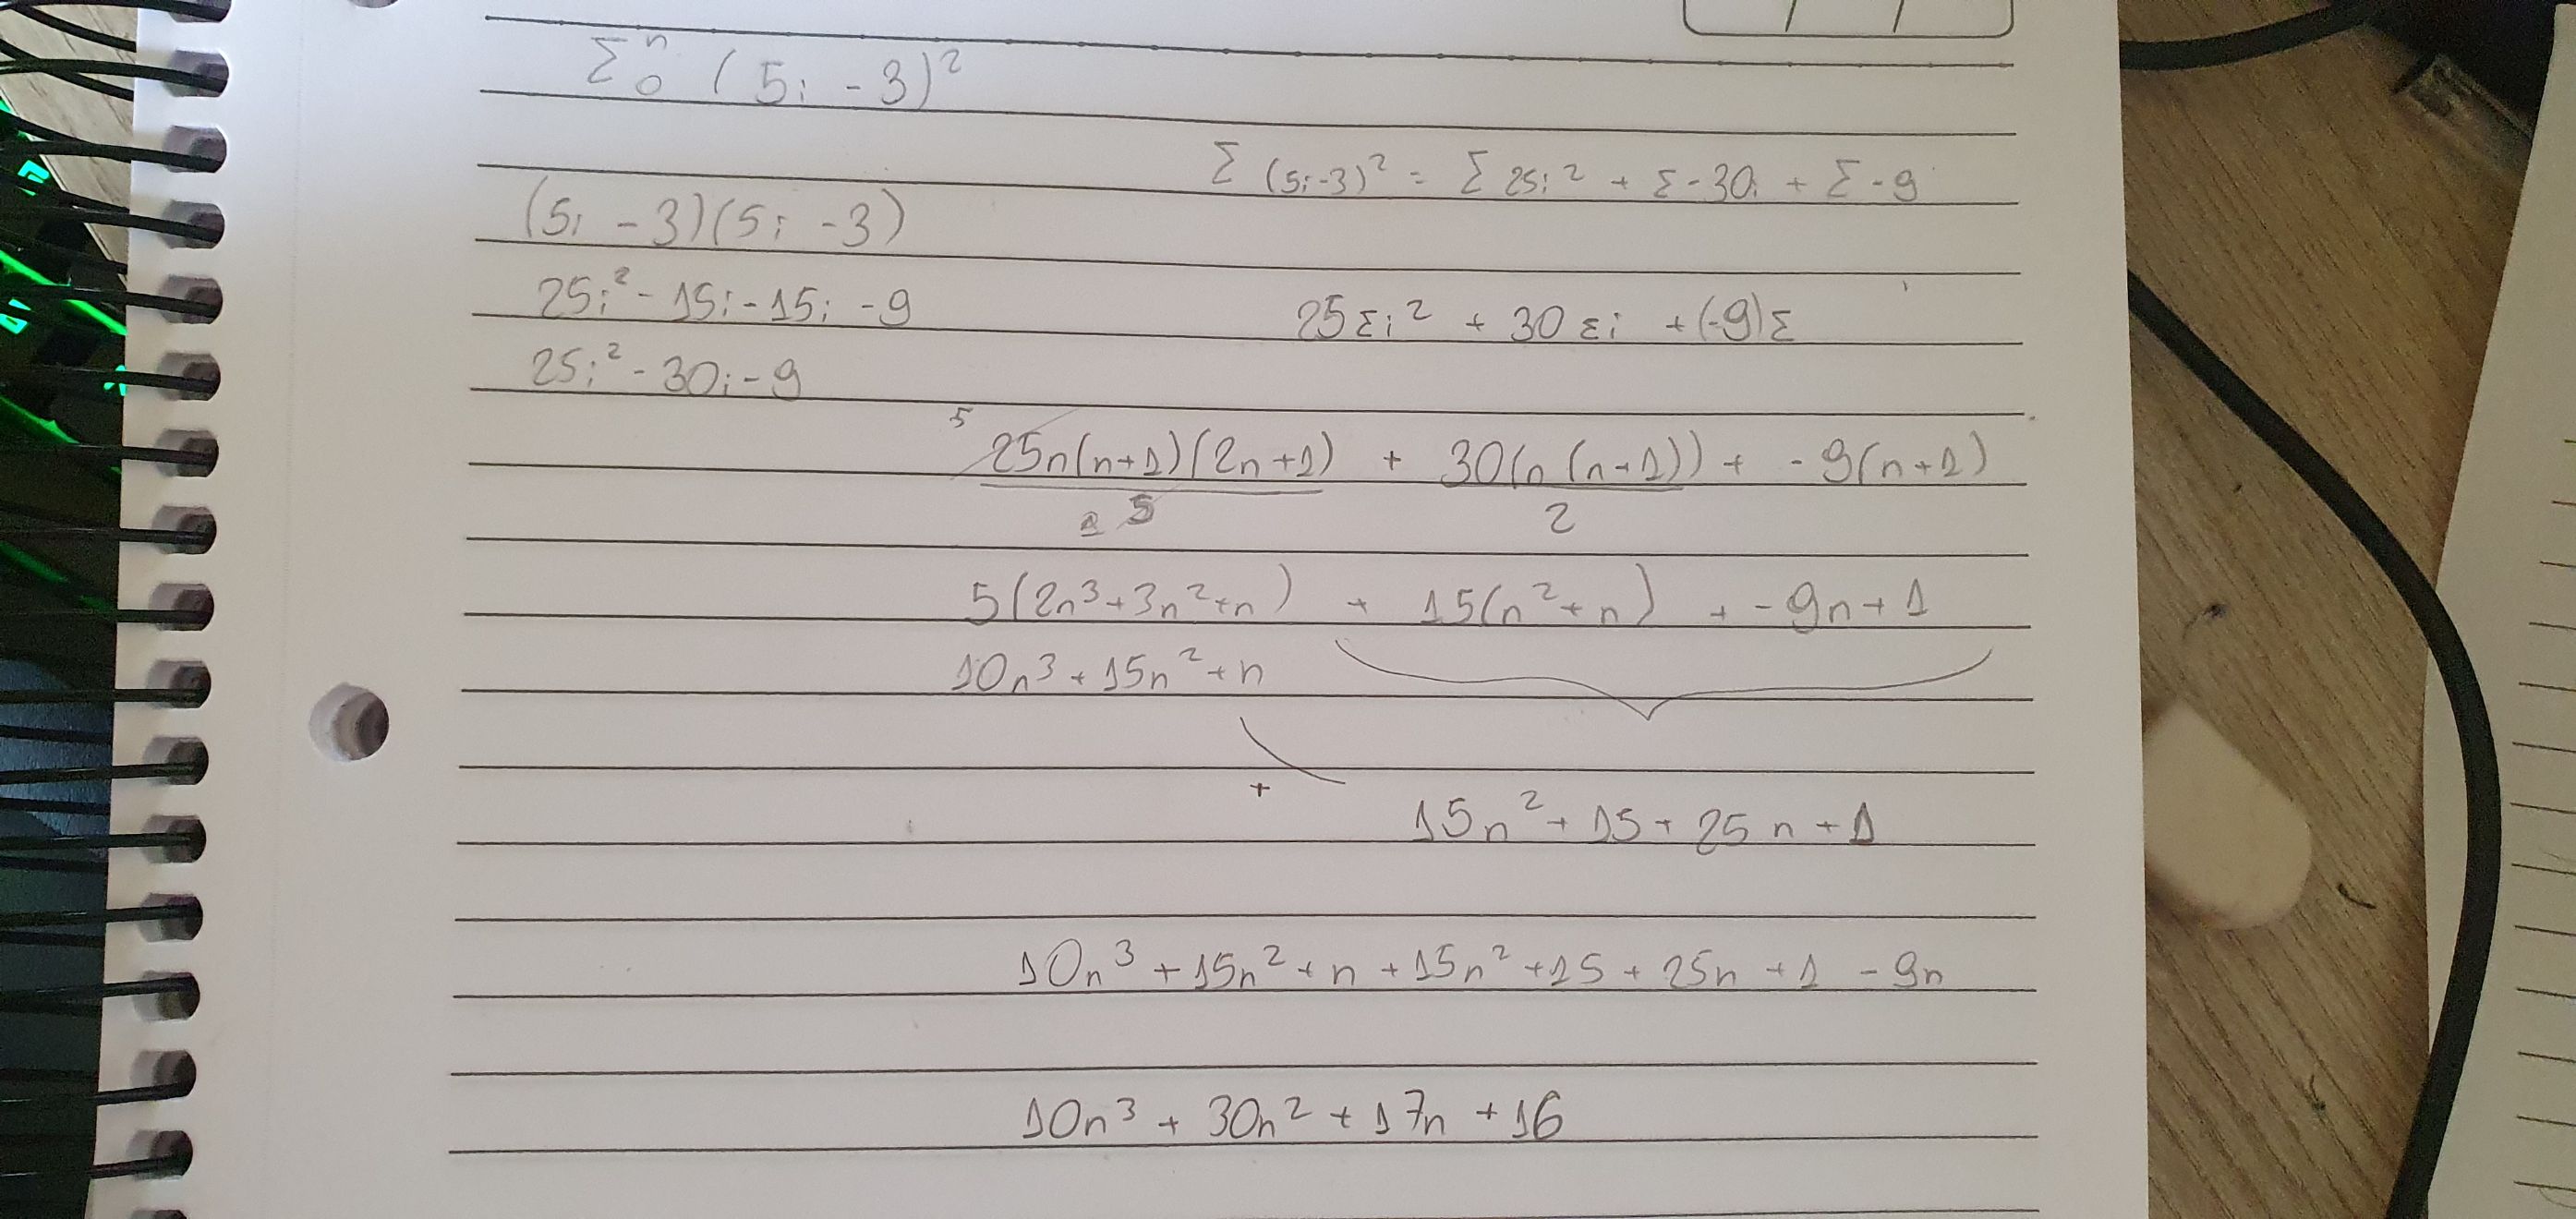 Σ₀ⁿ (5i - 3)²
Σ (5i-3)² = Σ 25i² + Σ-30i + Σ-9
(5i - 3)(5i - 3)
25i² - 15i - 15i - 9
25Σi² + 30Σi + (-9)Σ
25i² - 30i - 9
5
25n(n+1)(2n+1) + 30(n(n+1)) + - 9(n+1)
5 2
5(2n³+3n²+n) + 15(n²+n) + - 9n+1
10n³ + 15n² + n
+ 15n² + 15 + 25n + 1
10n³ + 15n² + n + 15n² + 15 + 25n + 1 - 9n
10n³ + 30n² + 17n + 16